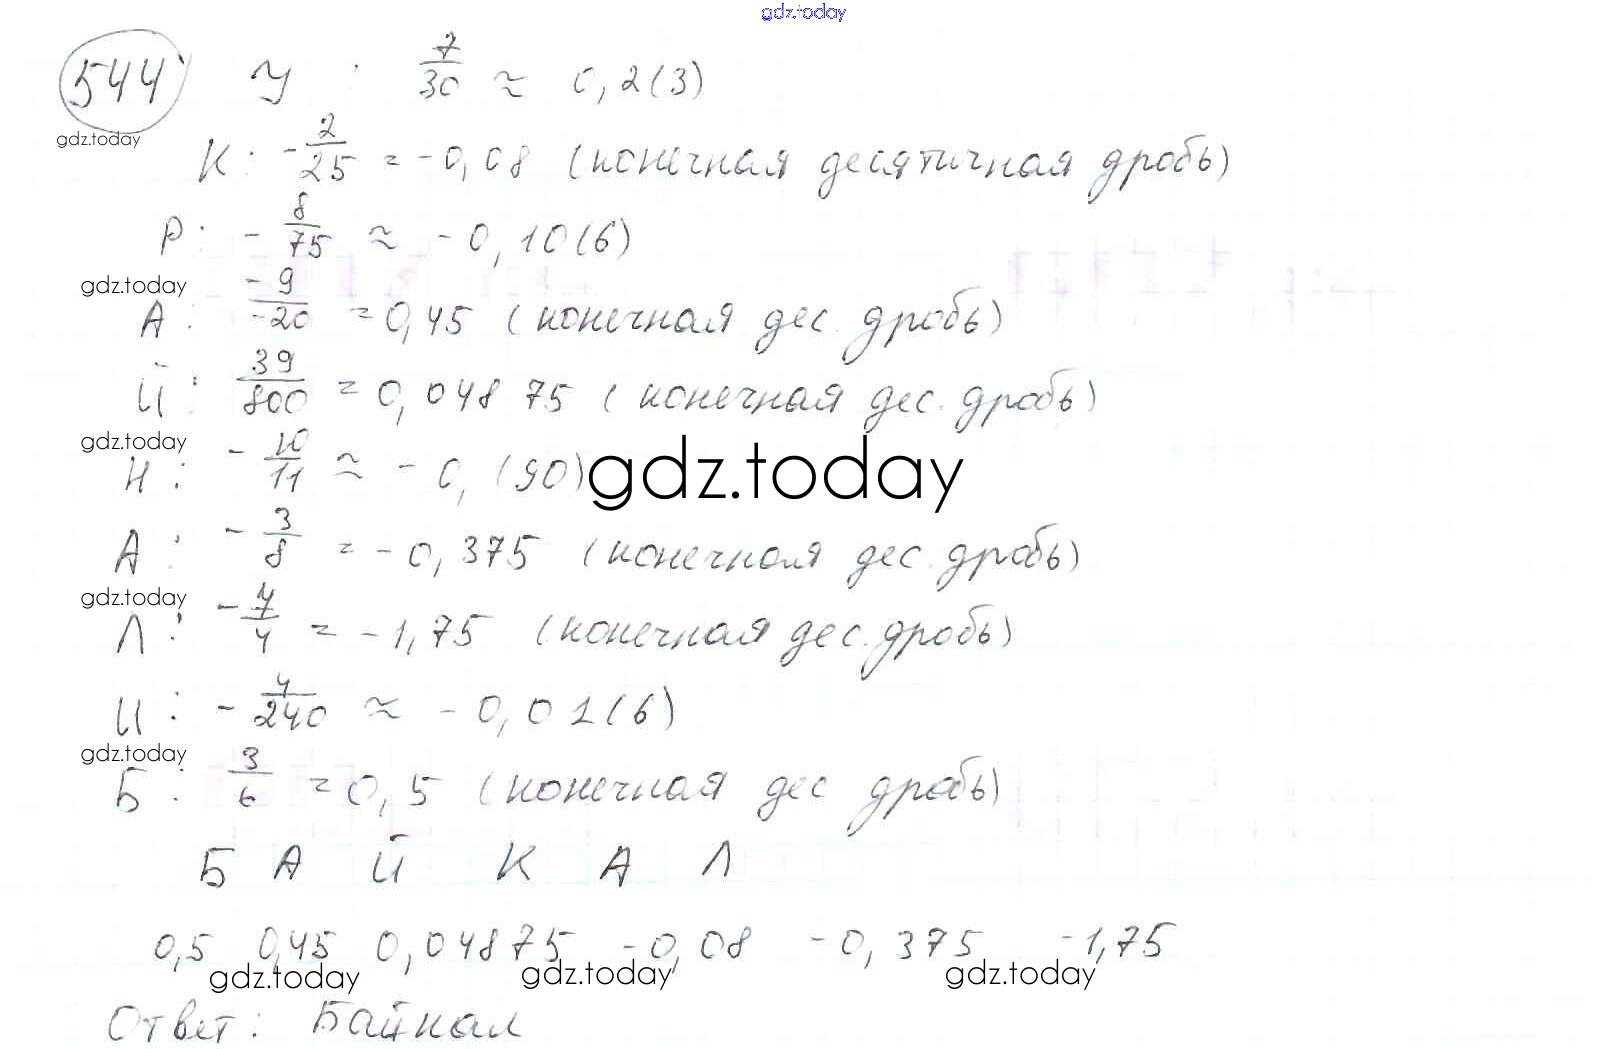 gdz.today
544 У : 7/30 ≈ 0,2(3)
gdz.today
К : - 2/25 = -0,08 (конечная десятичная дробь)
Р : - 8/75 ≈ -0,10(6)
gdz.today
А : -9/-20 = 0,45 (конечная дес. дробь)
Й : 39/800 = 0,04875 (конечная дес. дробь)
gdz.today
Н : - 10/11 ≈ -0,(90) gdz.today
А : - 3/8 = -0,375 (конечная дес. дробь)
gdz.today
Л : - 7/4 = -1,75 (конечная дес. дробь)
И : - 4/240 ≈ -0,01(6)
gdz.today
Б : 3/6 = 0,5 (конечная дес дробь)
Б А Й К А Л
0,5 0,45 0,04875 -0,08 -0,375 -1,75
gdz.today gdz.today gdz.today
Ответ : Байкал